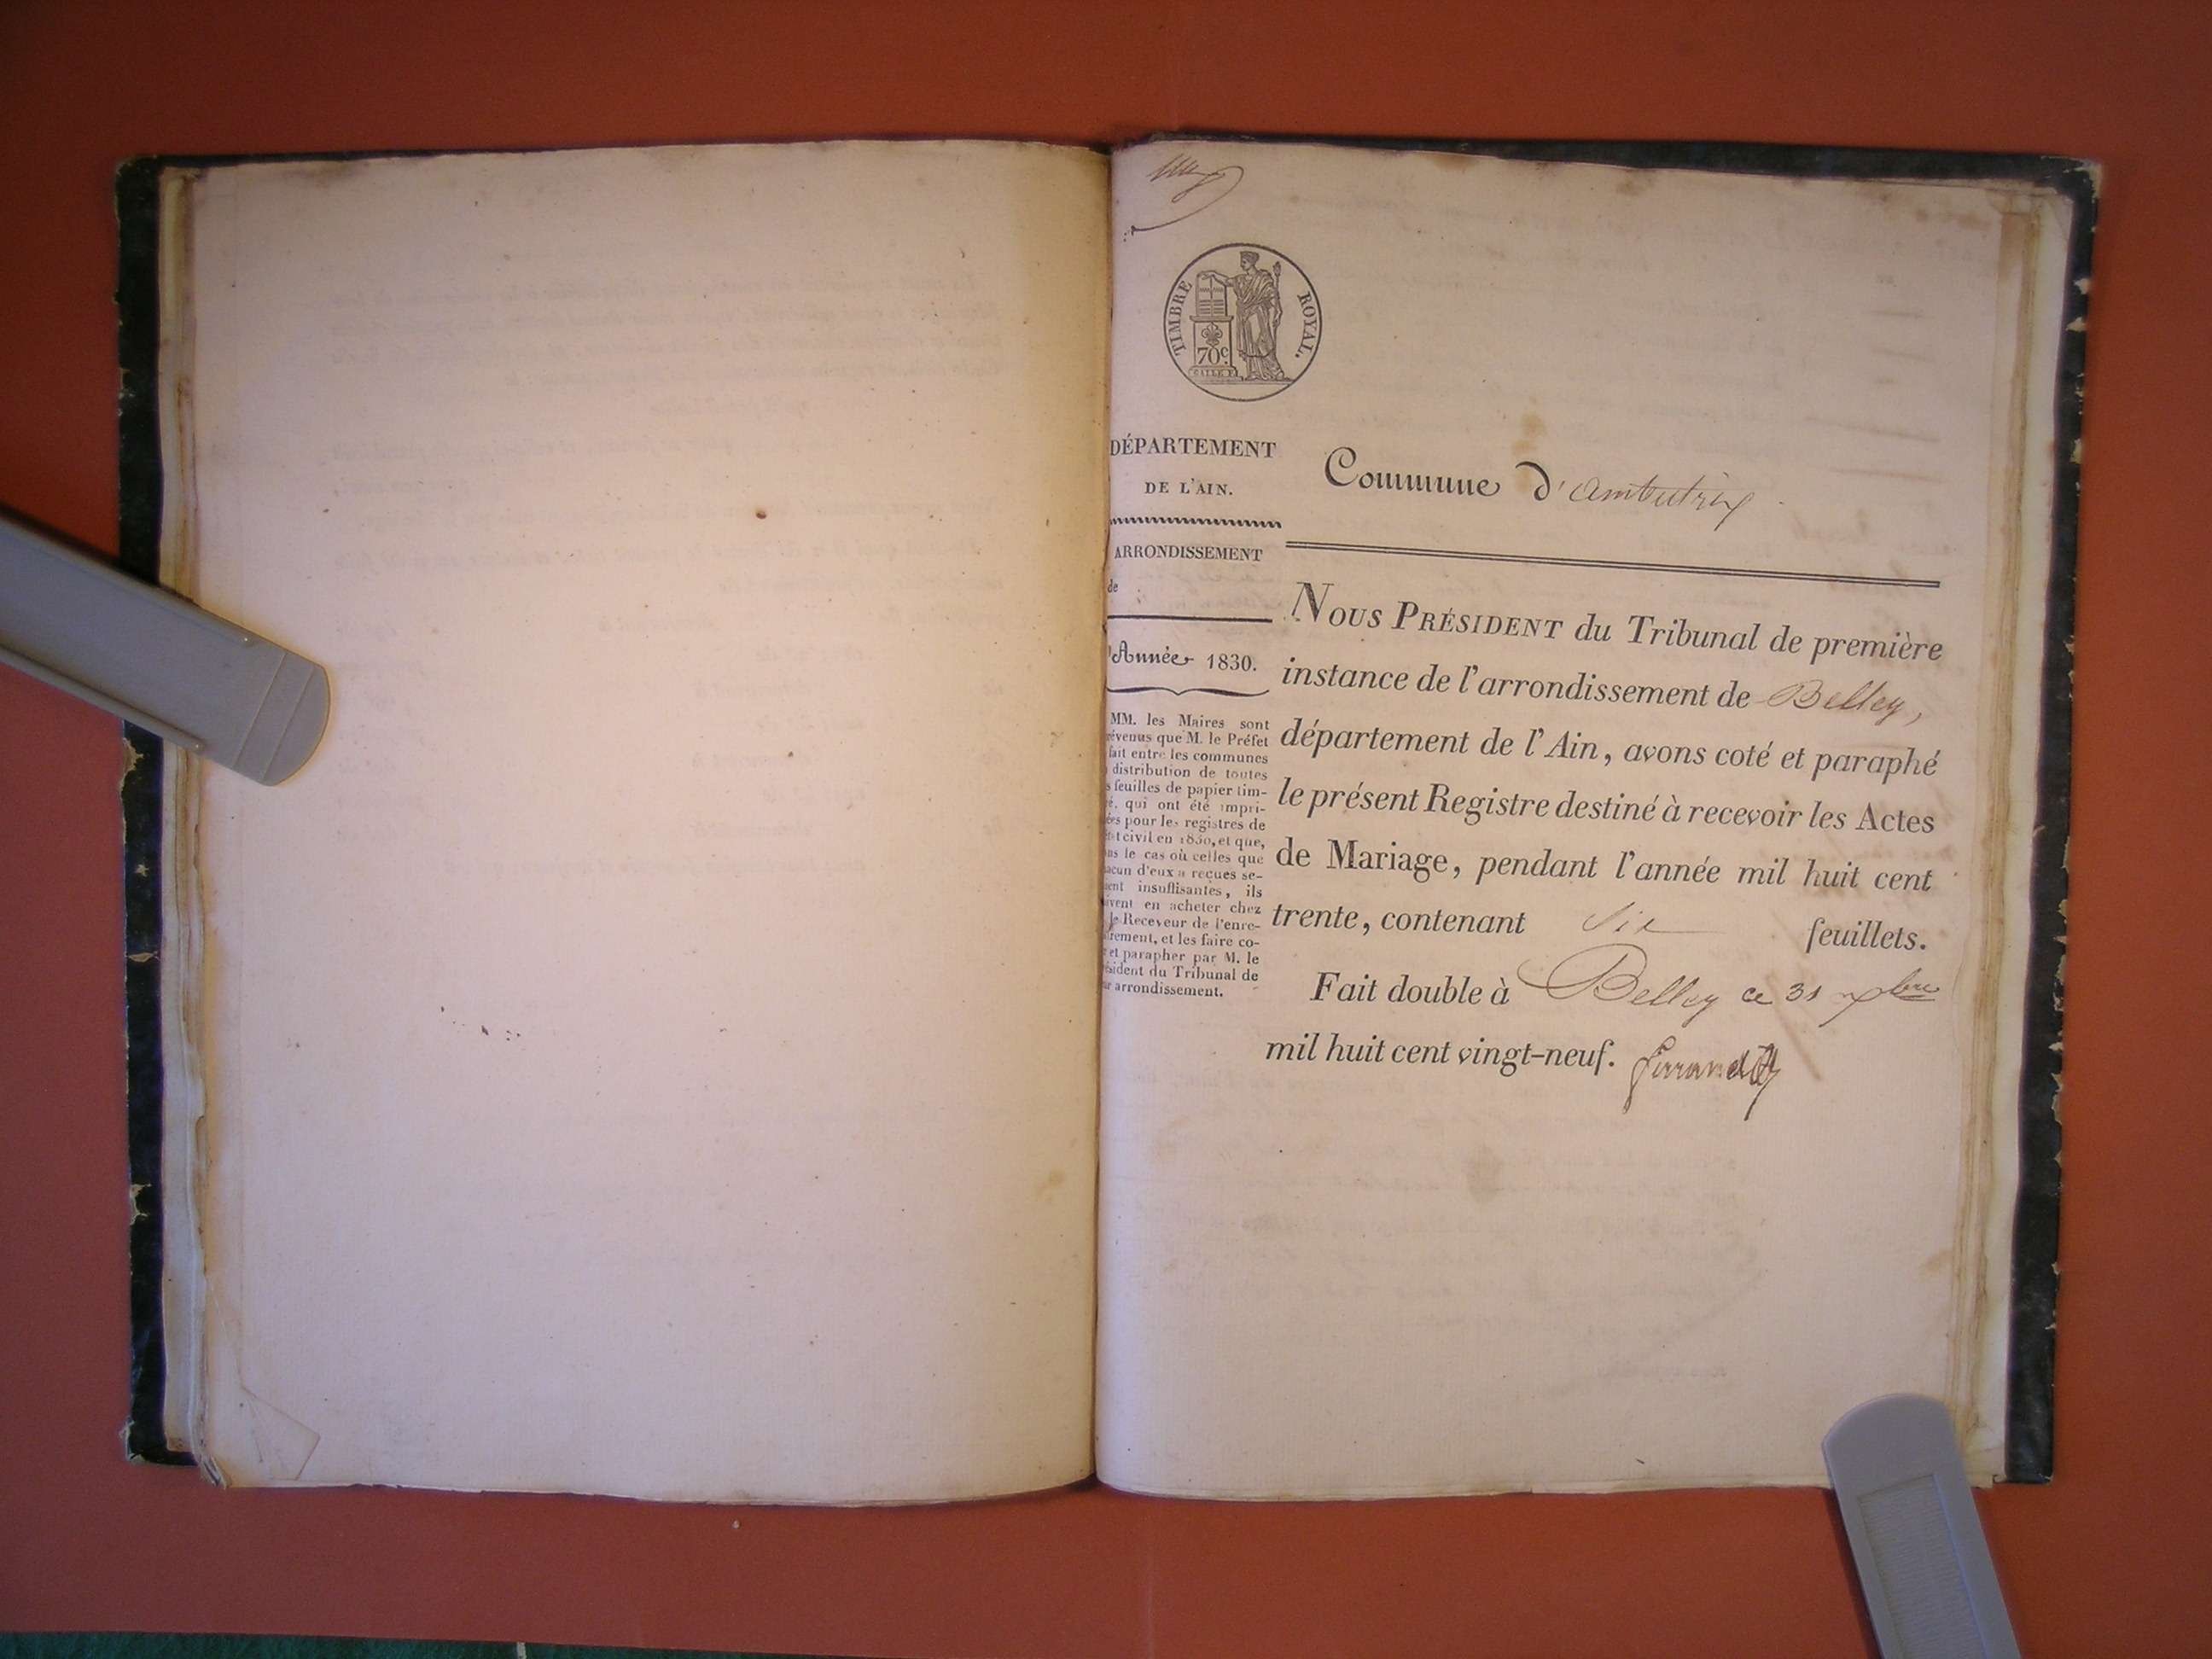 TIMBRE ROYAL.
70c
DÉPARTEMENT
DE L'AIN.
Commune d'ambutrix
ARRONDISSEMENT
de
Année 1830.
MM. les Maires sont
révenus que M. le Préfet
fait entre les communes
distribution de toutes
s feuilles de papier tim-
é, qui ont été impri-
ées pour les registres de
t civil en 1830, et que,
ns le cas où celles que
acun d'eux a reçues se-
ent insuffisantes, ils
ivent en acheter chez
le Receveur de l'enre-
rement, et les faire co-
et parapher par M. le
ésident du Tribunal de
r arrondissement.
NOUS PRÉSIDENT du Tribunal de première
instance de l'arrondissement de Belley,
département de l'Ain, avons coté et paraphé
le présent Registre destiné à recevoir les Actes
de Mariage, pendant l'année mil huit cent
trente, contenant Six feuillets.
Fait double à Belley ce 31 xbre
mil huit cent vingt-neuf.